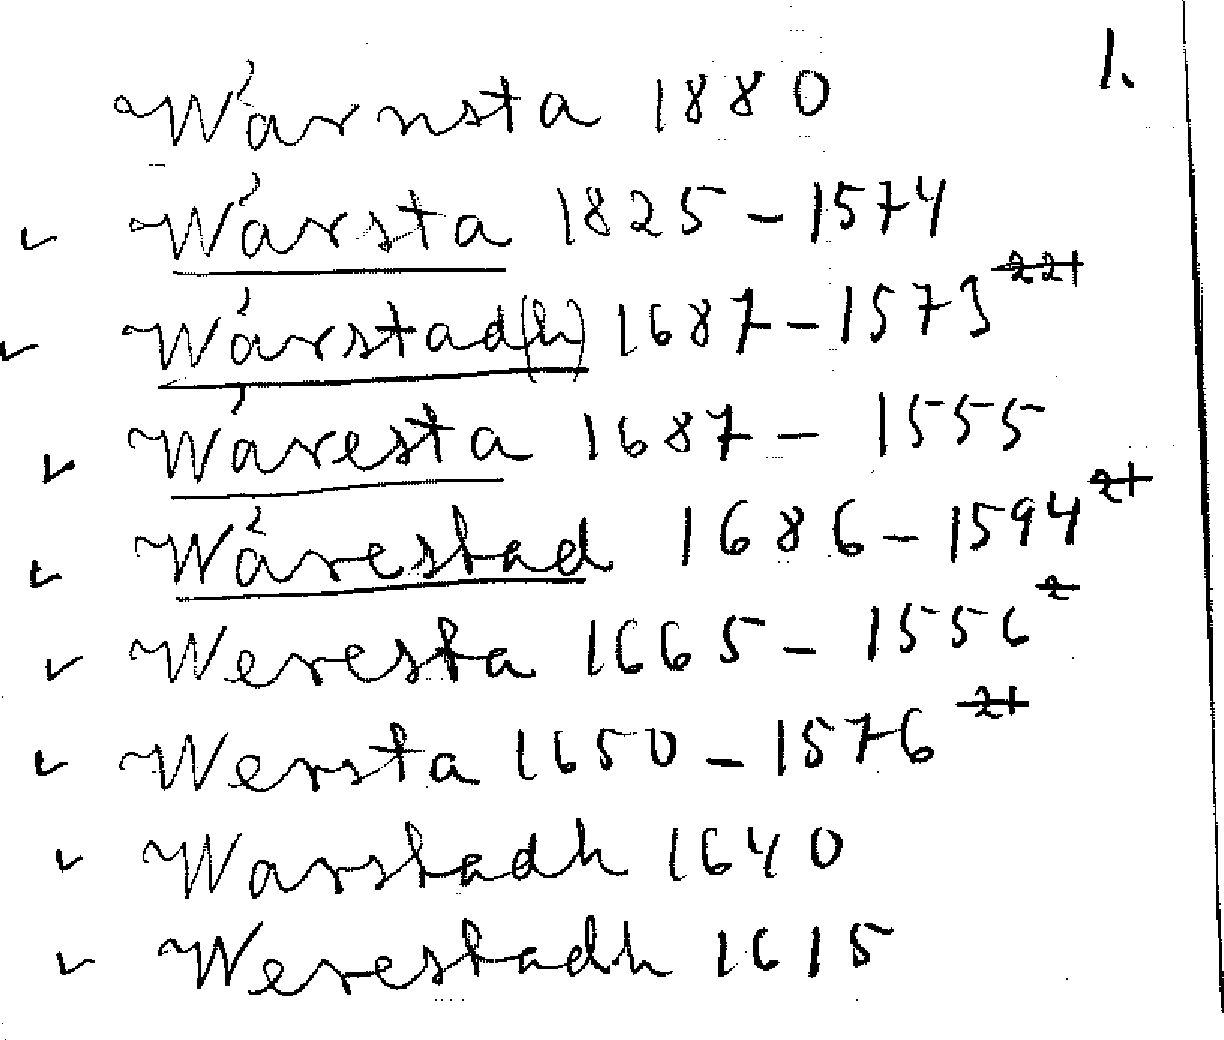 1.
Wärnsta 1880
✓ Wärsta 1825 – 1574
✓ Wärstad(h) 1687 – 1573
✓ Wäresta 1687 – 1555
✓ Wärestad 1686 – 1594
✓ Weresta 1665 – 1556
✓ Wersta 1650 – 1576
✓ Warstadh 1640
✓ Werestadh 1615